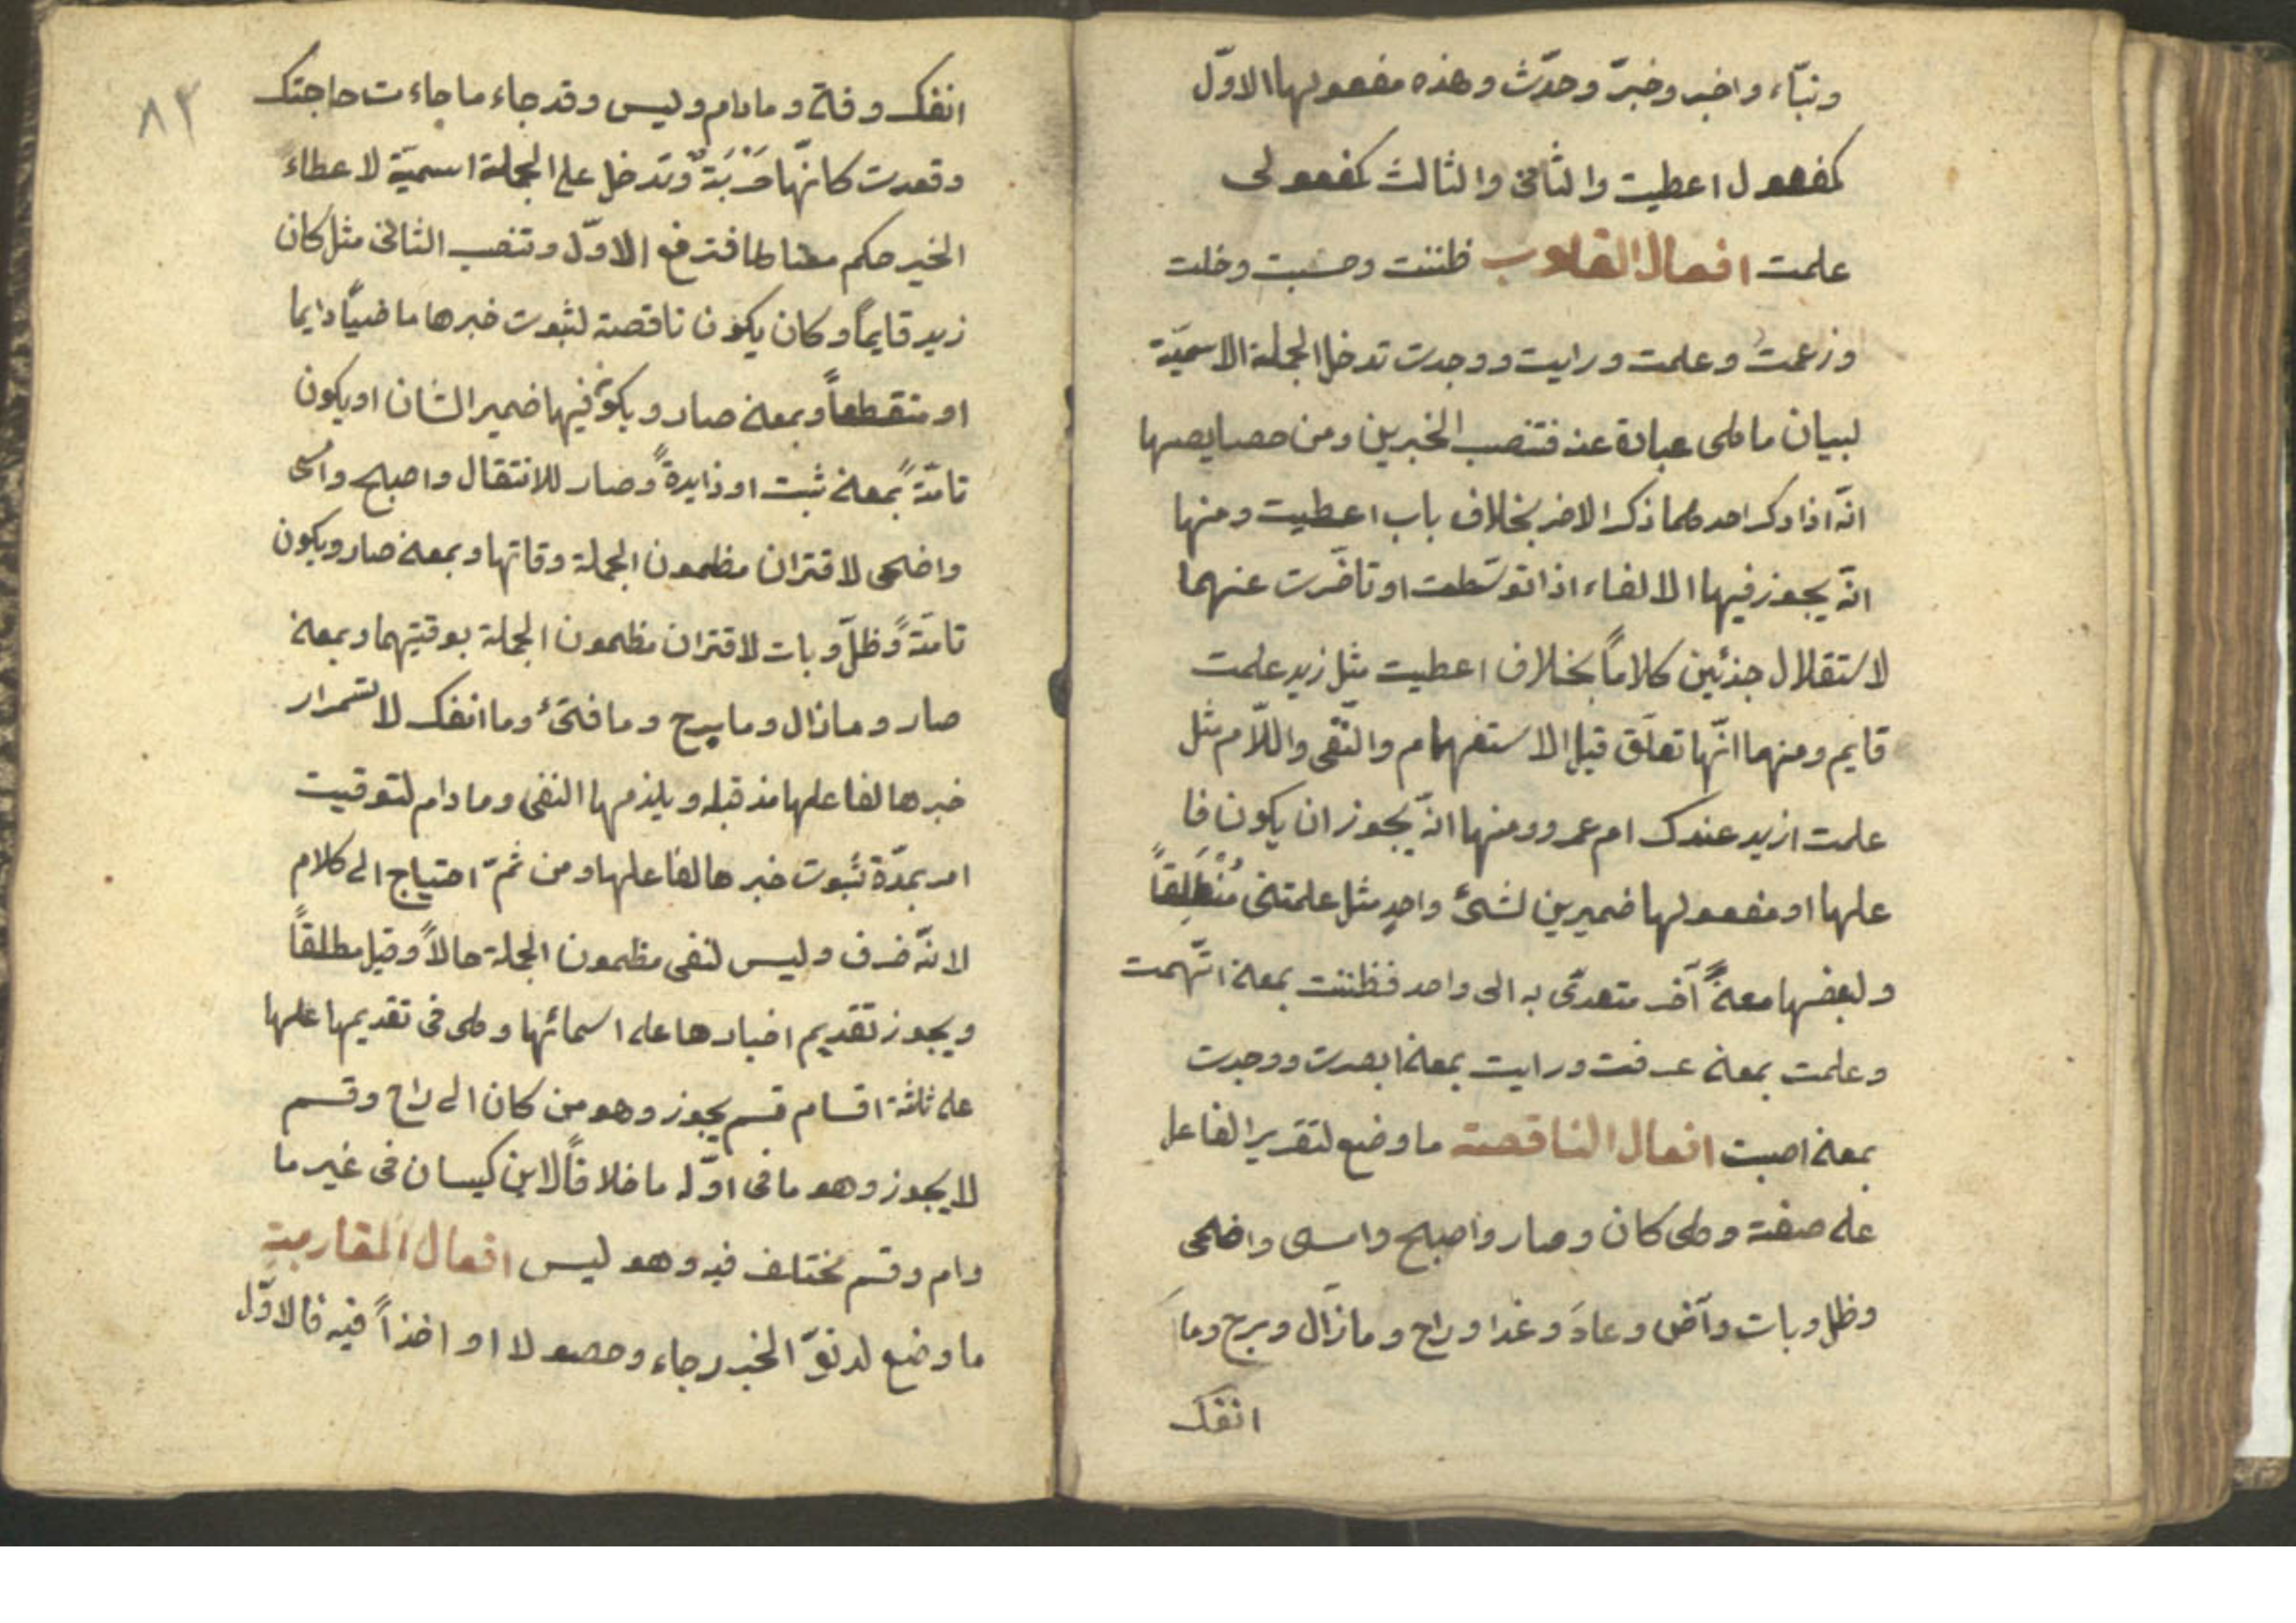 ونبّاء واخبر وخبرّ وحدّث وهذه مفعولها الاوّل
كمفعول اعطيت والثانى والثالث كمفعولى
علمت افعال القلوب ظننت وحسبت وخلت
وزعمت وعلمت ورايت ووجدت تدخل الجملة الاسميّة
لبيان ما هى عبادة عنه فتنصب الخبرين ومن خصايصها
انّه اذا ذكر احدهما ذكر الاخر بخلاف باب اعطيت ومنها
انّه يجوز فيها الالغاء اذا توسّطت او تاخّرت عنهما
لاستقلال جزئين كلاماً بخلاف اعطيت مثل زيد علمت
قايم ومنهما انّها تعلّق قبل الاستفهام والنّفى واللاّم مثل
علمت ازيد عندك ام عمرو ومنها انّه يجوز ان يكون فا
علها او مفعولها ضميرين لشئ واحدٍ مثل علمتنى مُنْطَلِقاً
ولبعضها معنىً آخر متعدّى به الى واحد فظننت بمعنى اتّهمت
وعلمت بمعنى عرفت ورايت بمعنى ابصرت ووجدت
بمعنى اصبت افعال الناقصة ما وضع لتقرير الفاعل
على صفة وهى كان وصار واصبح وامسى واضحى
وظل وبات وآض وعادَ وغدا وراح ومازال وبرح وماَ
انفكَ
٨٣
انفك وفتئ ومادام وليس وقد جاء ما جاءت حاجتك
وقعدت كانّها حَرْبَةٌ وتدخل على الجملة اسميّة لاعطاء
الخبر حكم معناها فترفع الاوّل وتنصب الثانى مثل كان
زيد قايماً وكان يكون ناقصة لثبوت خبرها ماضيّاً دايما
او منقطعاً وبمعنى صار ويكون فيها ضمير الشان او يكون
تامّةً بمعنى ثبت او زايدةً وصار للانتقال واصبح وامسى
واضحى لاقتران مظمون الجملة وقاتها وبمعنى صار ويكون
تامّةً وظلّ وبات لاقتران مظمون الجملة بوقتيهما وبمعنى
صار ومازال ومابرح ومافتئ وماانفك لاستمرار
خبرها لفاعلها مذ قبله ويلزمها النفى ومادام لتوقيت
امر بمدّة ثبوت خبرها لفاعلها ومن ثمّ احتياج الى كلام
لانّه ضرف وليس لنفى مظمون الجملة حالاً وقيل مطلقاً
ويجوز تقديم اخبارها على اسمائها وهى فى تقديمها علها
على ثلثة اقسام قسم يجوز وهو من كان الى راح وقسم
لا يجوز وهو ما فى اوّله ما خلافاً لابن كيسان فى غير ما
دام وقسم مختلف فيه وهو ليس افعال المقاربة
ما وضع لدنوّ الخبر رجاء وحصولا او اخذاً فيه فالاوّل